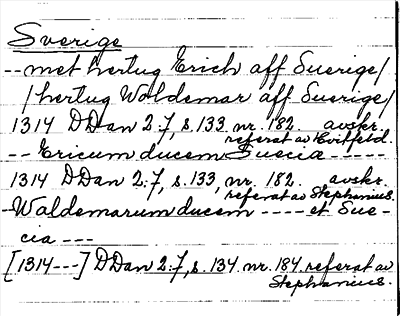 Sverige
-- met hertug Erich aff Suerige/
/hertug Woldemar aff Suerige/
1314 DDan 2:7, s. 133 nr. 182. avskr.
referat av Hvitfeld.
-- Ericum ducem Suecia -----
1314 DDan 2:7, s. 133, nr. 182. avskr.
referat av Stephanius.
-Woldemarum ducem ---- et Sue-
cia ---
[1314---] DDan 2:7, s. 134 nr. 184. referat av
Stephanius.